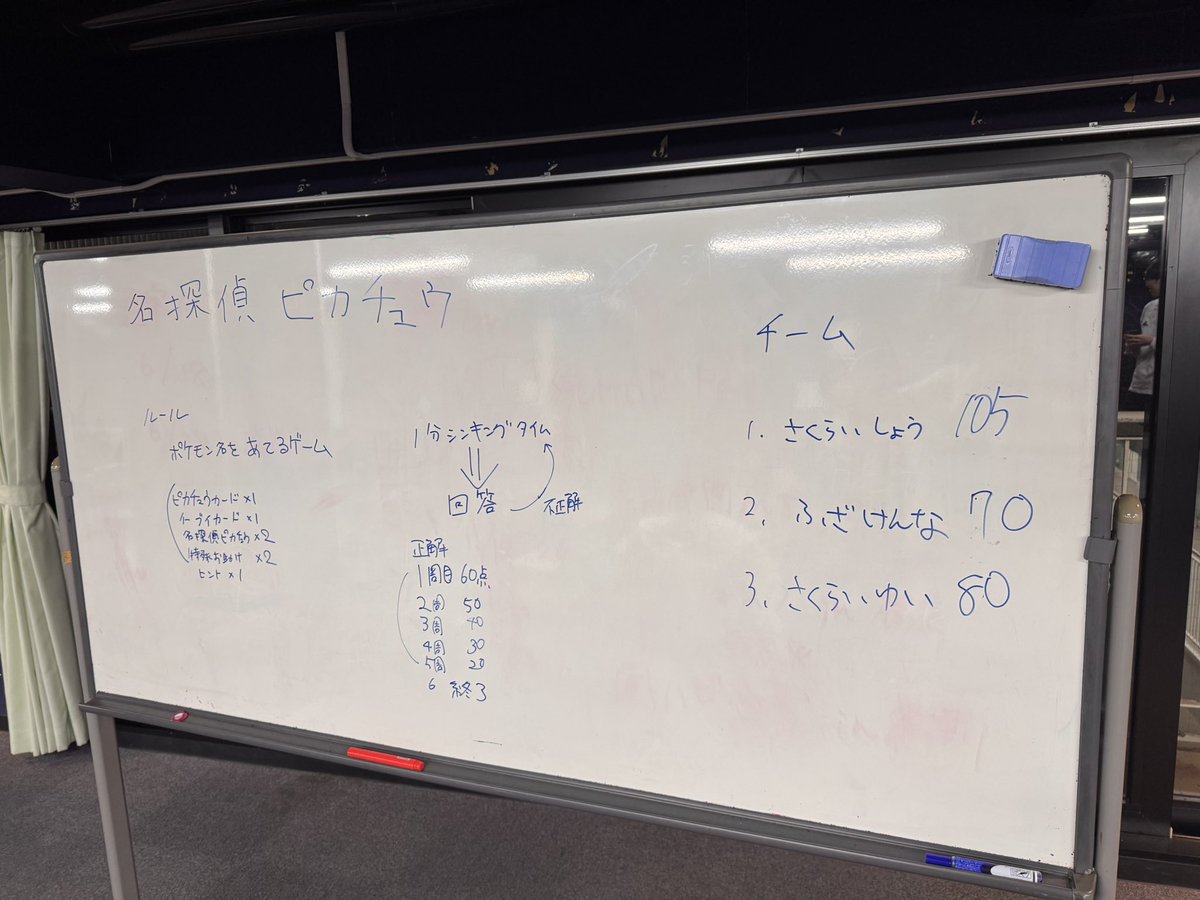 名探偵ピカチュウ
ルール
ポケモン名をあてるゲーム
ピカチュウカード×1
イーブイカード×1
名探偵ピカチュウ×2
特殊お助け×2
ヒント×1
1分シンキングタイム
回答
不正解
正解
1周目 60点
2周 50
3周 40
4周 30
5周 20
6 終了
チーム
1. さくらいしょう 105
2. ふざけんな 70
3. さくらいゆい 80